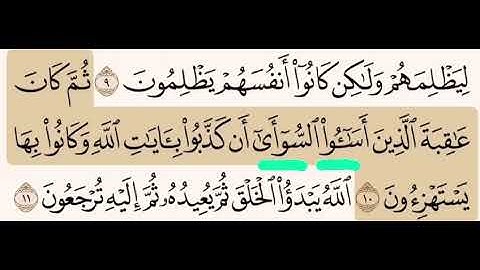 لِيَظْلِمَهُمْ وَلَٰكِن كَانُوٓا۟ أَنفُسَهُمْ يَظْلِمُونَ ٩ ثُمَّ كَانَ
عَٰقِبَةَ ٱلَّذِينَ أَسَٰٓـُٔوا۟ ٱلسُّوٓأَىٰٓ أَن كَذَّبُوا۟ بِـَٔايَٰتِ ٱللَّهِ وَكَانُوا۟ بِهَا
يَسْتَهْزِءُونَ ١٠ ٱللَّهُ يَبْدَؤُا۟ ٱلْخَلْقَ ثُمَّ يُعِيدُهُۥ ثُمَّ إِلَيْهِ تُرْجَعُونَ ١١